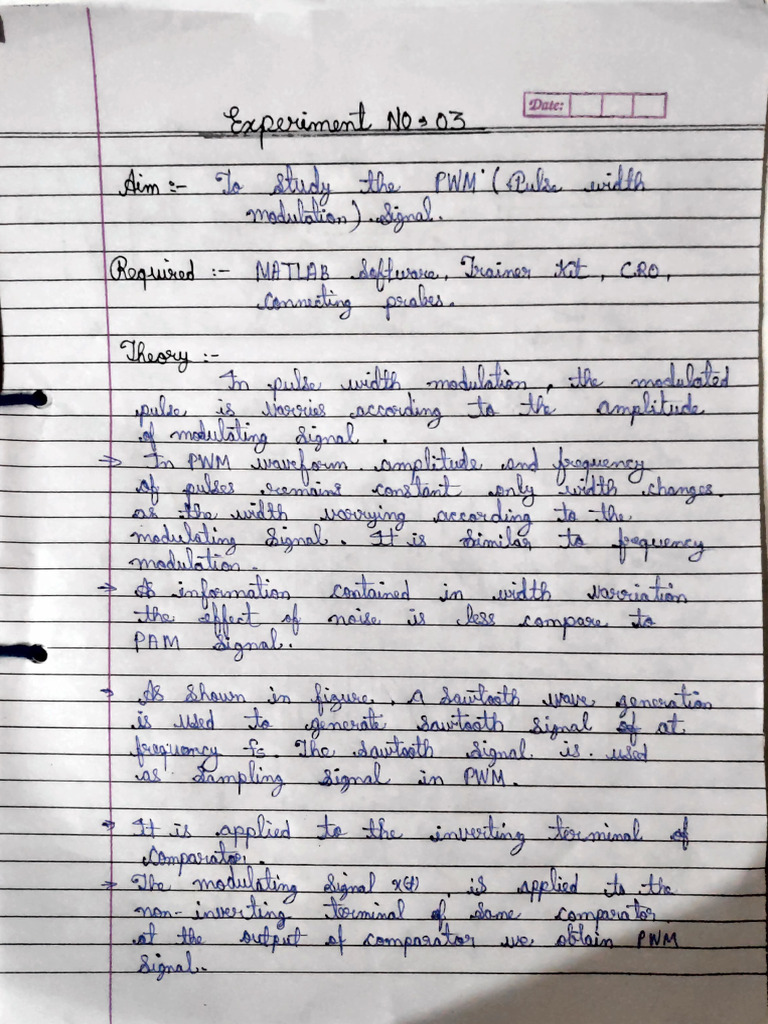 Date:
Experiment NO = 03
Aim :- To study the PWM (Pulse width
modulation) Signal.
Required :- MATLAB Software, Trainer Kit, CRO,
connecting probes.
Theory :-
In pulse width modulation, the modulated
pulse is varries according to the amplitude
of modulating signal.
→ In PWM waveform amplitude and frequency
of pulses remains constant only width changes.
as the width varrying according to the
modulating Signal. It is similar to frequency
modulation.
→ As information contained in width varriation
the effect of noise is less compare to
PAM Signal.
→ As shown in figure, a sawtooth wave generation
is used to generate sawtooth signal at
frequency fs. The sawtooth signal is used
as sampling signal in PWM.
→ It is applied to the inverting terminal of
comparator.
→ The modulating signal x(t) is applied to the
non-inverting terminal of same comparator.
at the output of comparator we obtain PWM
signal.